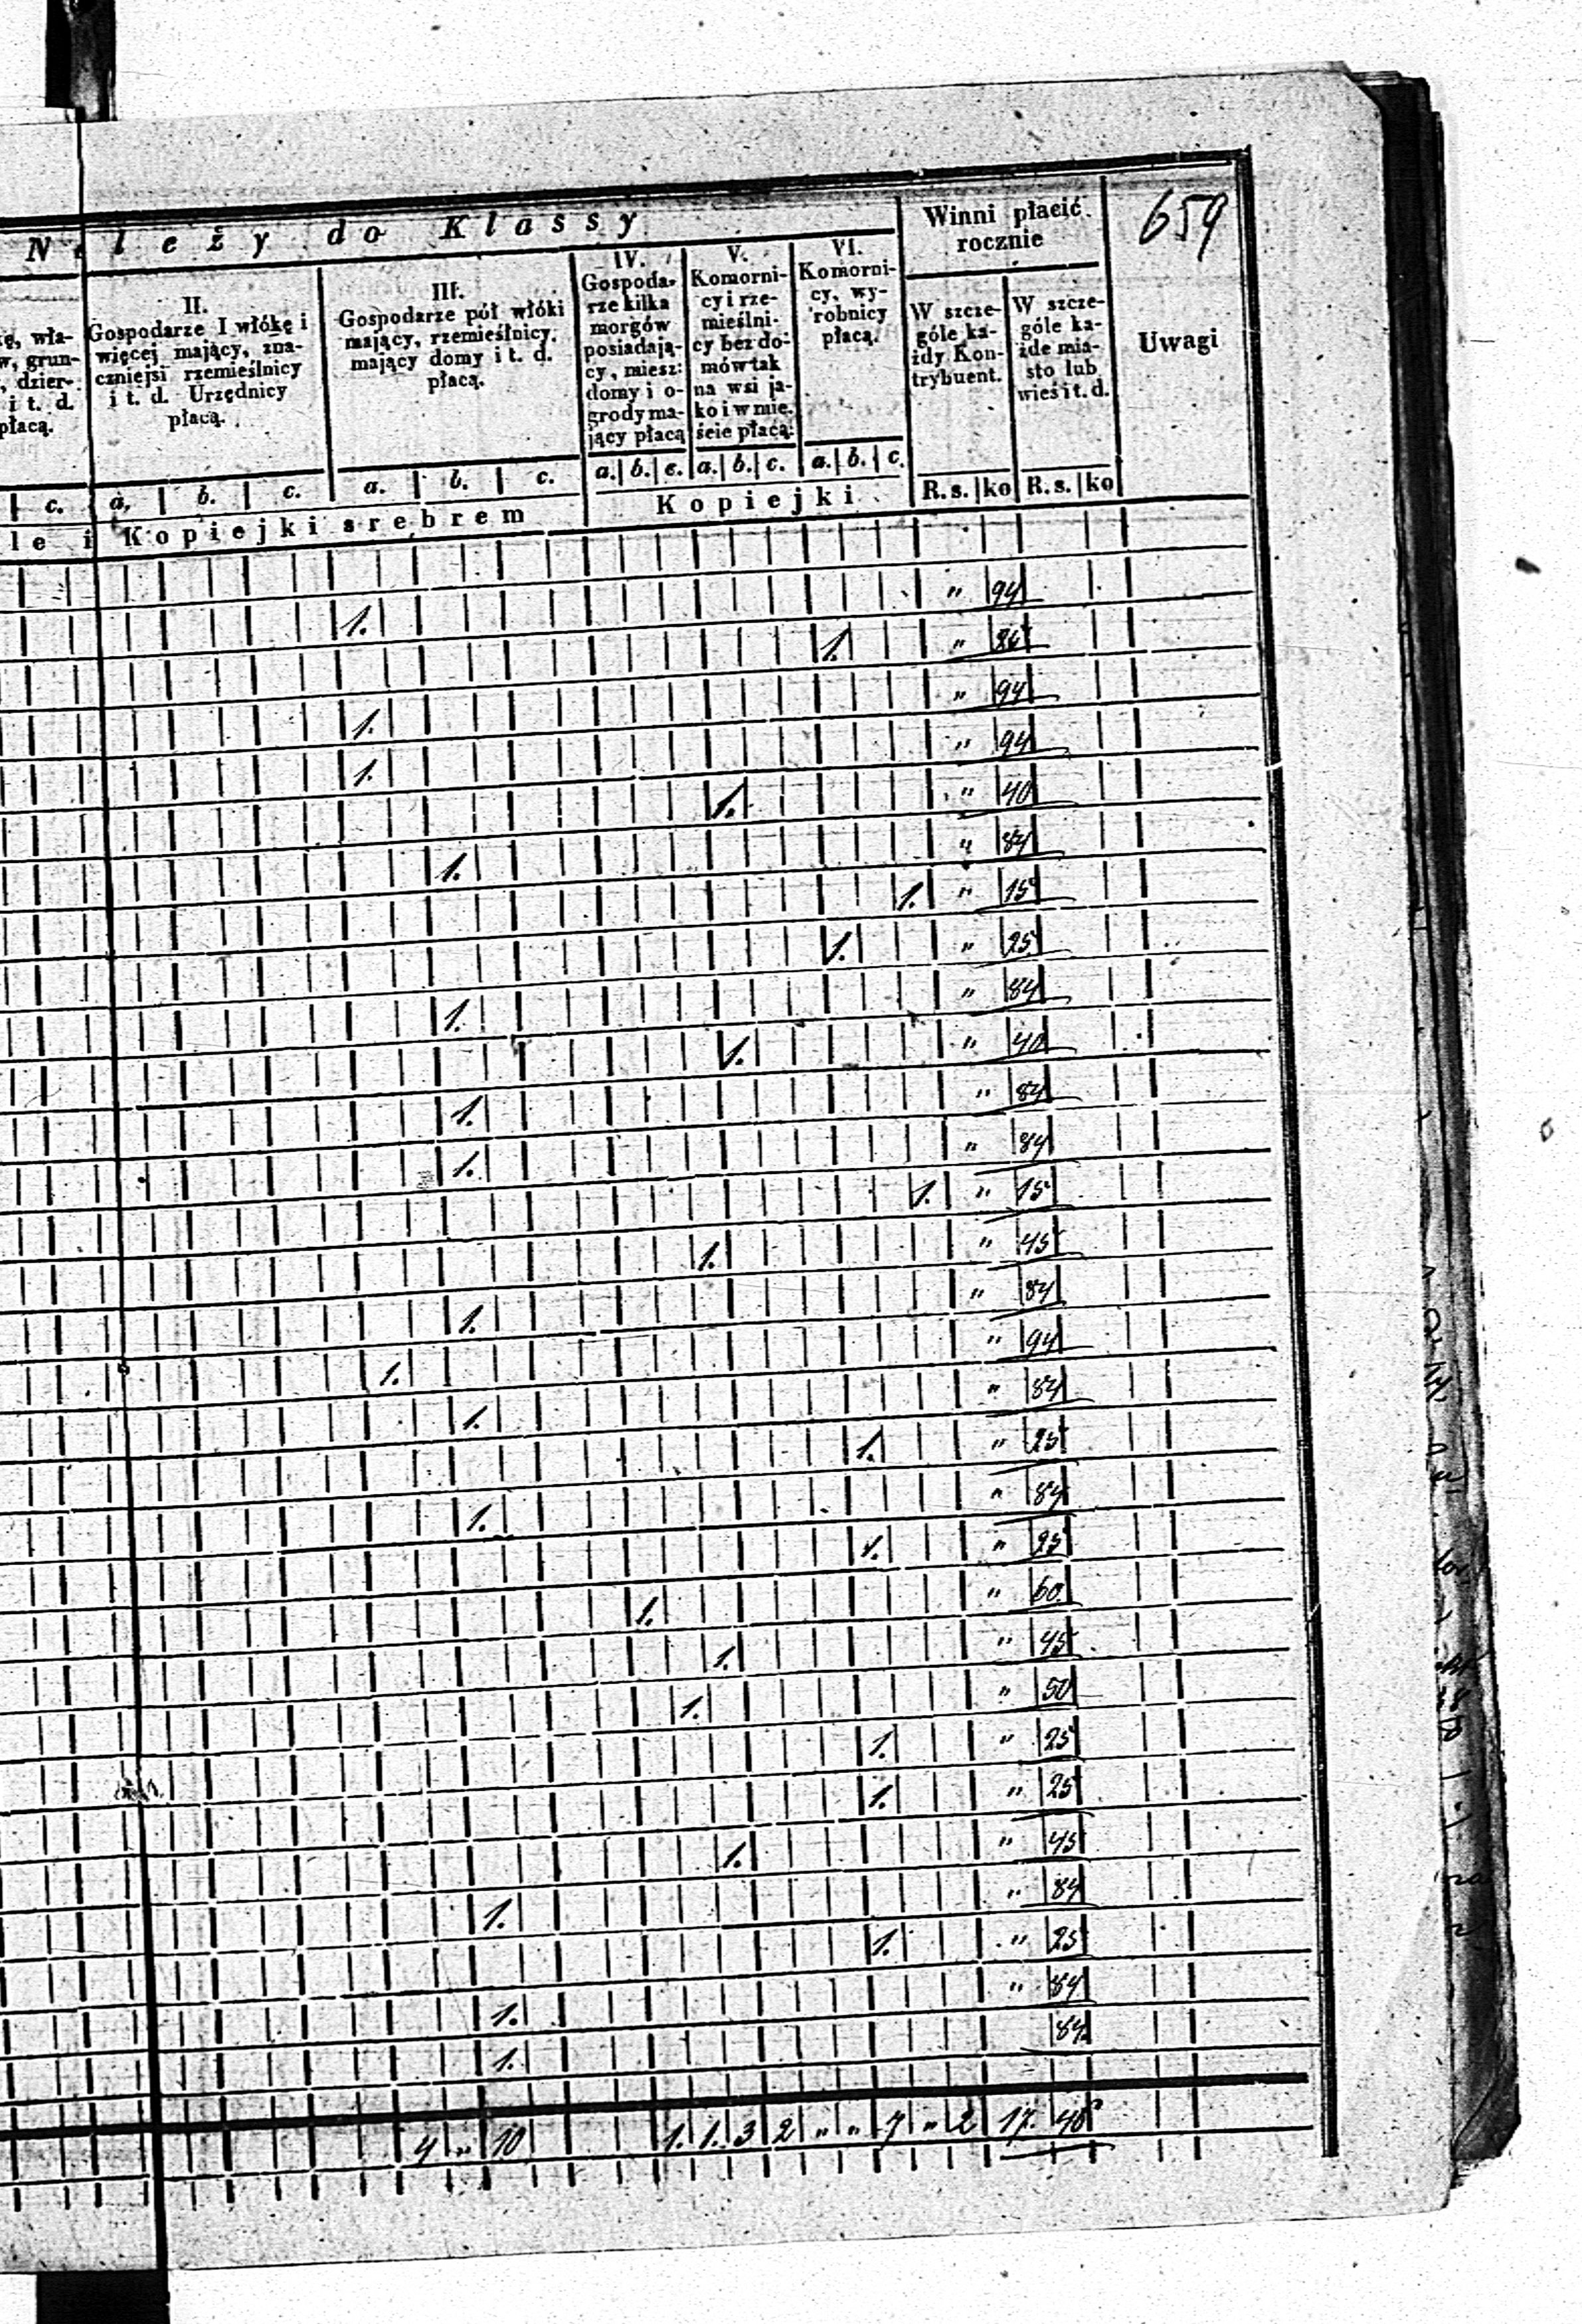 659
Należy do Klassy
Winni płacić rocznie
Uwagi
kę, wła-
w, grun-
, dzier-
i t. d.
płacą.
II.
Gospodarze I włókę i
więcej mający, zna-
czniejsi rzemieślnicy
i t. d. Urzędnicy
płacą.
III.
Gospodarze pół włóki
mający, rzemieślnicy,
mający domy i t. d.
płacą.
IV.
Gospoda-
rze kilka
morgów
posiadają-
cy, miesz:
domy i o-
grody ma-
jący płacą
V.
Komorni-
cy i rze-
mieślni-
cy bez do-
mów tak
na wsi ja-
ko i w mie-
ście płacą:
VI.
Komorni-
cy, wy-
robnicy
płacą.
W szcze-
góle ka-
żdy Kon-
trybuent.
W szcze-
góle ka-
żde mia-
sto lub
wieś i t. d.
c. a. b. c. a. b. c. a. b. c. a. b. c. a. b. c. R. s. ko R. s. ko
le i Kopiejki srebrem Kopiejki
1. " 94
1. " 25
1. " 94
1. " 94
1. " 40
1. " 84
1. " 15
1. " 25
1. " 84
1. " 40
1. " 84
1. " 84
1. " 15
1. " 45
1. " 84
1. " 94
1. " 84
1. " 25
1. " 84
1. " 25
1. " 60
1. " 45
1. " 50
1. " 25
1. " 25
1. " 45
1. " 84
1. " 25
1. " 84
1. 84
4 " 10 1. 1. 3 2 " " 7 " 2 17. 48